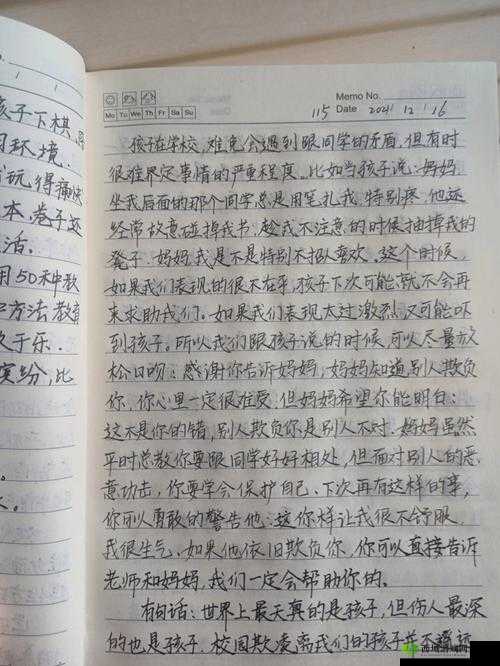 孩子下棋,同
环境.
玩得痛快
本,卷子还
活。
用50种教
方法教育
于乐.
缤纷,比
Memo No.
Mo Tu We Th Fr Sa Su
115 Date 2021 12 16
孩子在学校,难免会遇到跟同学的矛盾,但有时
很难界定事情的严重程度。比如当孩子说:妈妈,
坐我后面的那个同学总是用笔扎我,特别疼,他还
经常故意碰掉我书,趁我不注意的时候抽掉我的
凳子.妈妈,我是不是特别不招人喜欢。这个时候,
如果我们表现的很不在乎,孩子下次可能就不会再
来求助我们。如果我们表现太过激烈,又可能吓
到孩子。所以我们跟孩子说的时候,可以尽量放
松口吻:感谢你告诉妈妈,妈妈知道别人欺负
你,你心里一定很难受,但妈妈希望你能明白:
这不是你的错,别人欺负你是别人不对.妈妈虽然
平时总教你要跟同学好好相处,但面对别人的恶
意功击,你要学会保护自己、下次再有这样的事,
你可以勇敢的警告他:这你样让我很不舒服,
我很生气.如果他依旧欺负你,你可以直接告诉
老师和妈妈,我们一定会帮助你的.
有句话:世界上最天真的是孩子,但伤人最深
的也是孩子,校园欺凌离我们的孩子并不遥远